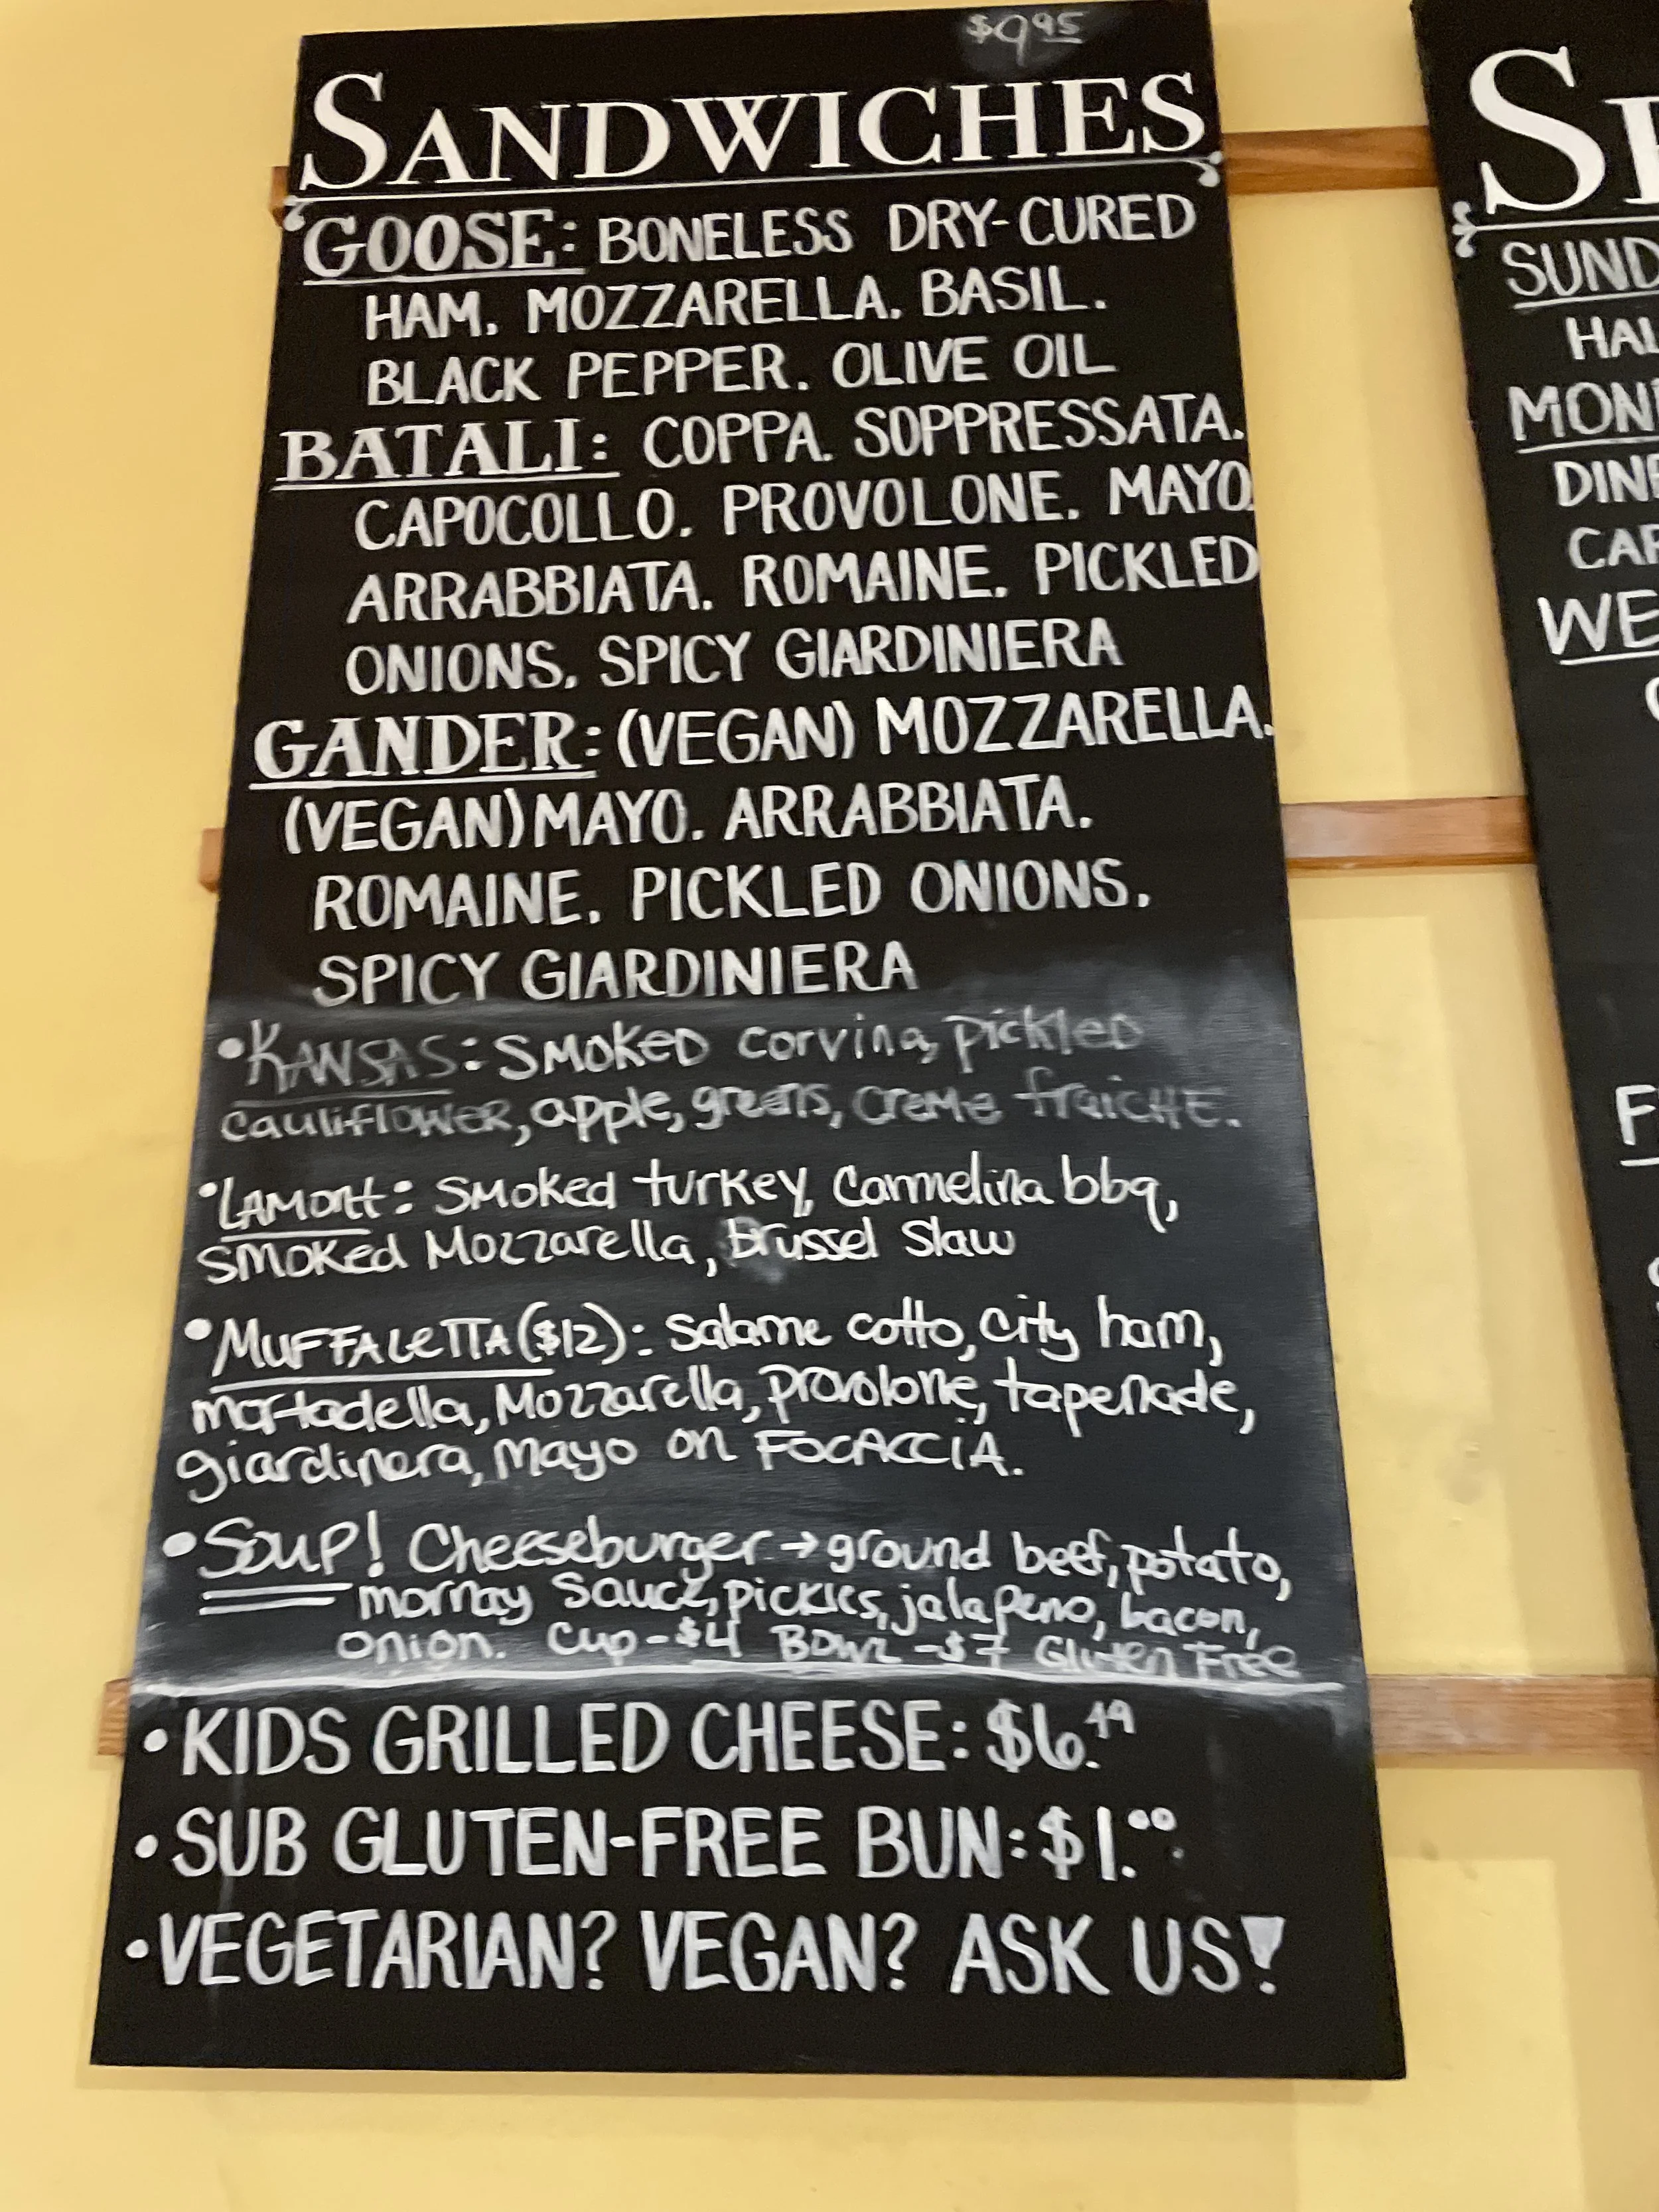 $9.95
SANDWICHES
GOOSE: BONELESS DRY-CURED
HAM. MOZZARELLA. BASIL.
BLACK PEPPER. OLIVE OIL
BATALI: COPPA. SOPPRESSATA.
CAPOCOLLO. PROVOLONE. MAYO.
ARRABBIATA. ROMAINE. PICKLED
ONIONS. SPICY GIARDINIERA
GANDER: (VEGAN) MOZZARELLA.
(VEGAN) MAYO. ARRABBIATA.
ROMAINE. PICKLED ONIONS.
SPICY GIARDINIERA
•KANSAS: SMOKED corvina, pickled
cauliflower, apple, greens, creme fraiche.
•LAMONT: Smoked turkey, Carmelina bbq,
smoked Mozzarella, Brussel Slaw
•MUFFALETTA ($12): salame cotto, city ham,
mortadella, Mozzarella, provolone, tapenade,
giardinera, Mayo on FOCACCIA.
•Soup! Cheeseburger → ground beef, potato,
mornay sauce, pickles, jalapeno, bacon,
onion. Cup - $4 Bowl - $7 Gluten Free
• KIDS GRILLED CHEESE: $6.49
• SUB GLUTEN-FREE BUN: $1.00
• VEGETARIAN? VEGAN? ASK US!
SUND
HAL
MON
DINE
CAR
WE
F